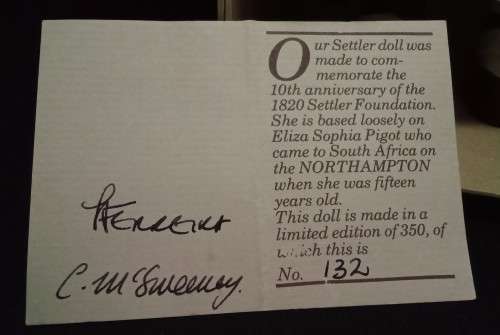 Our Settler doll was
made to com-
memorate the
10th anniversary of the
1820 Settler Foundation.
She is based loosely on
Eliza Sophia Pigot who
came to South Africa on
the NORTHAMPTON
when she was fifteen
years old.
This doll is made in a
limited edition of 350, of
which this is
No. 132
Ferreira
C. McSweeney.